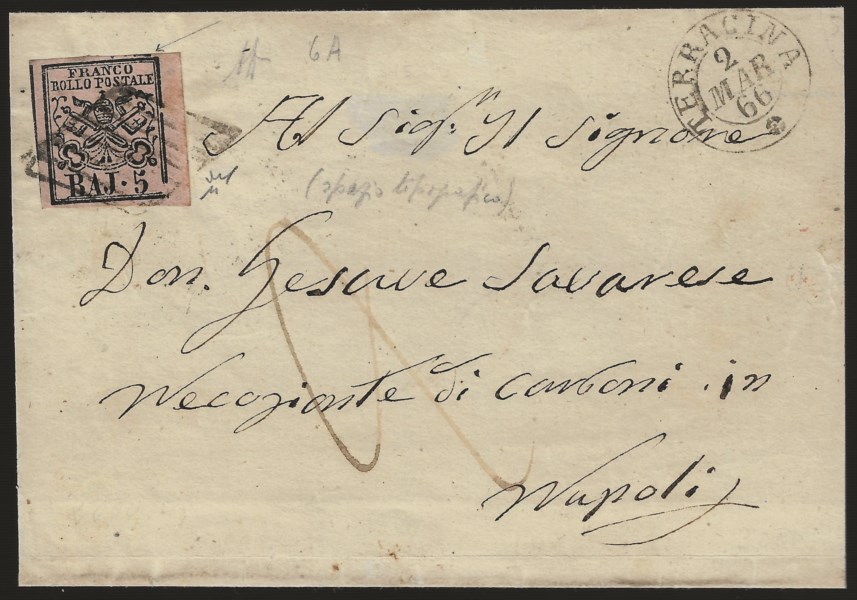 FRANCO
BOLLO POSTALE
BAJ. 5
6A
TERRACINA
2
MAR
66
Al Sigr. Il Signore
(spazio tipografico)
Don. Cesare Savarese
Negoziante di Carboni in
Napoli